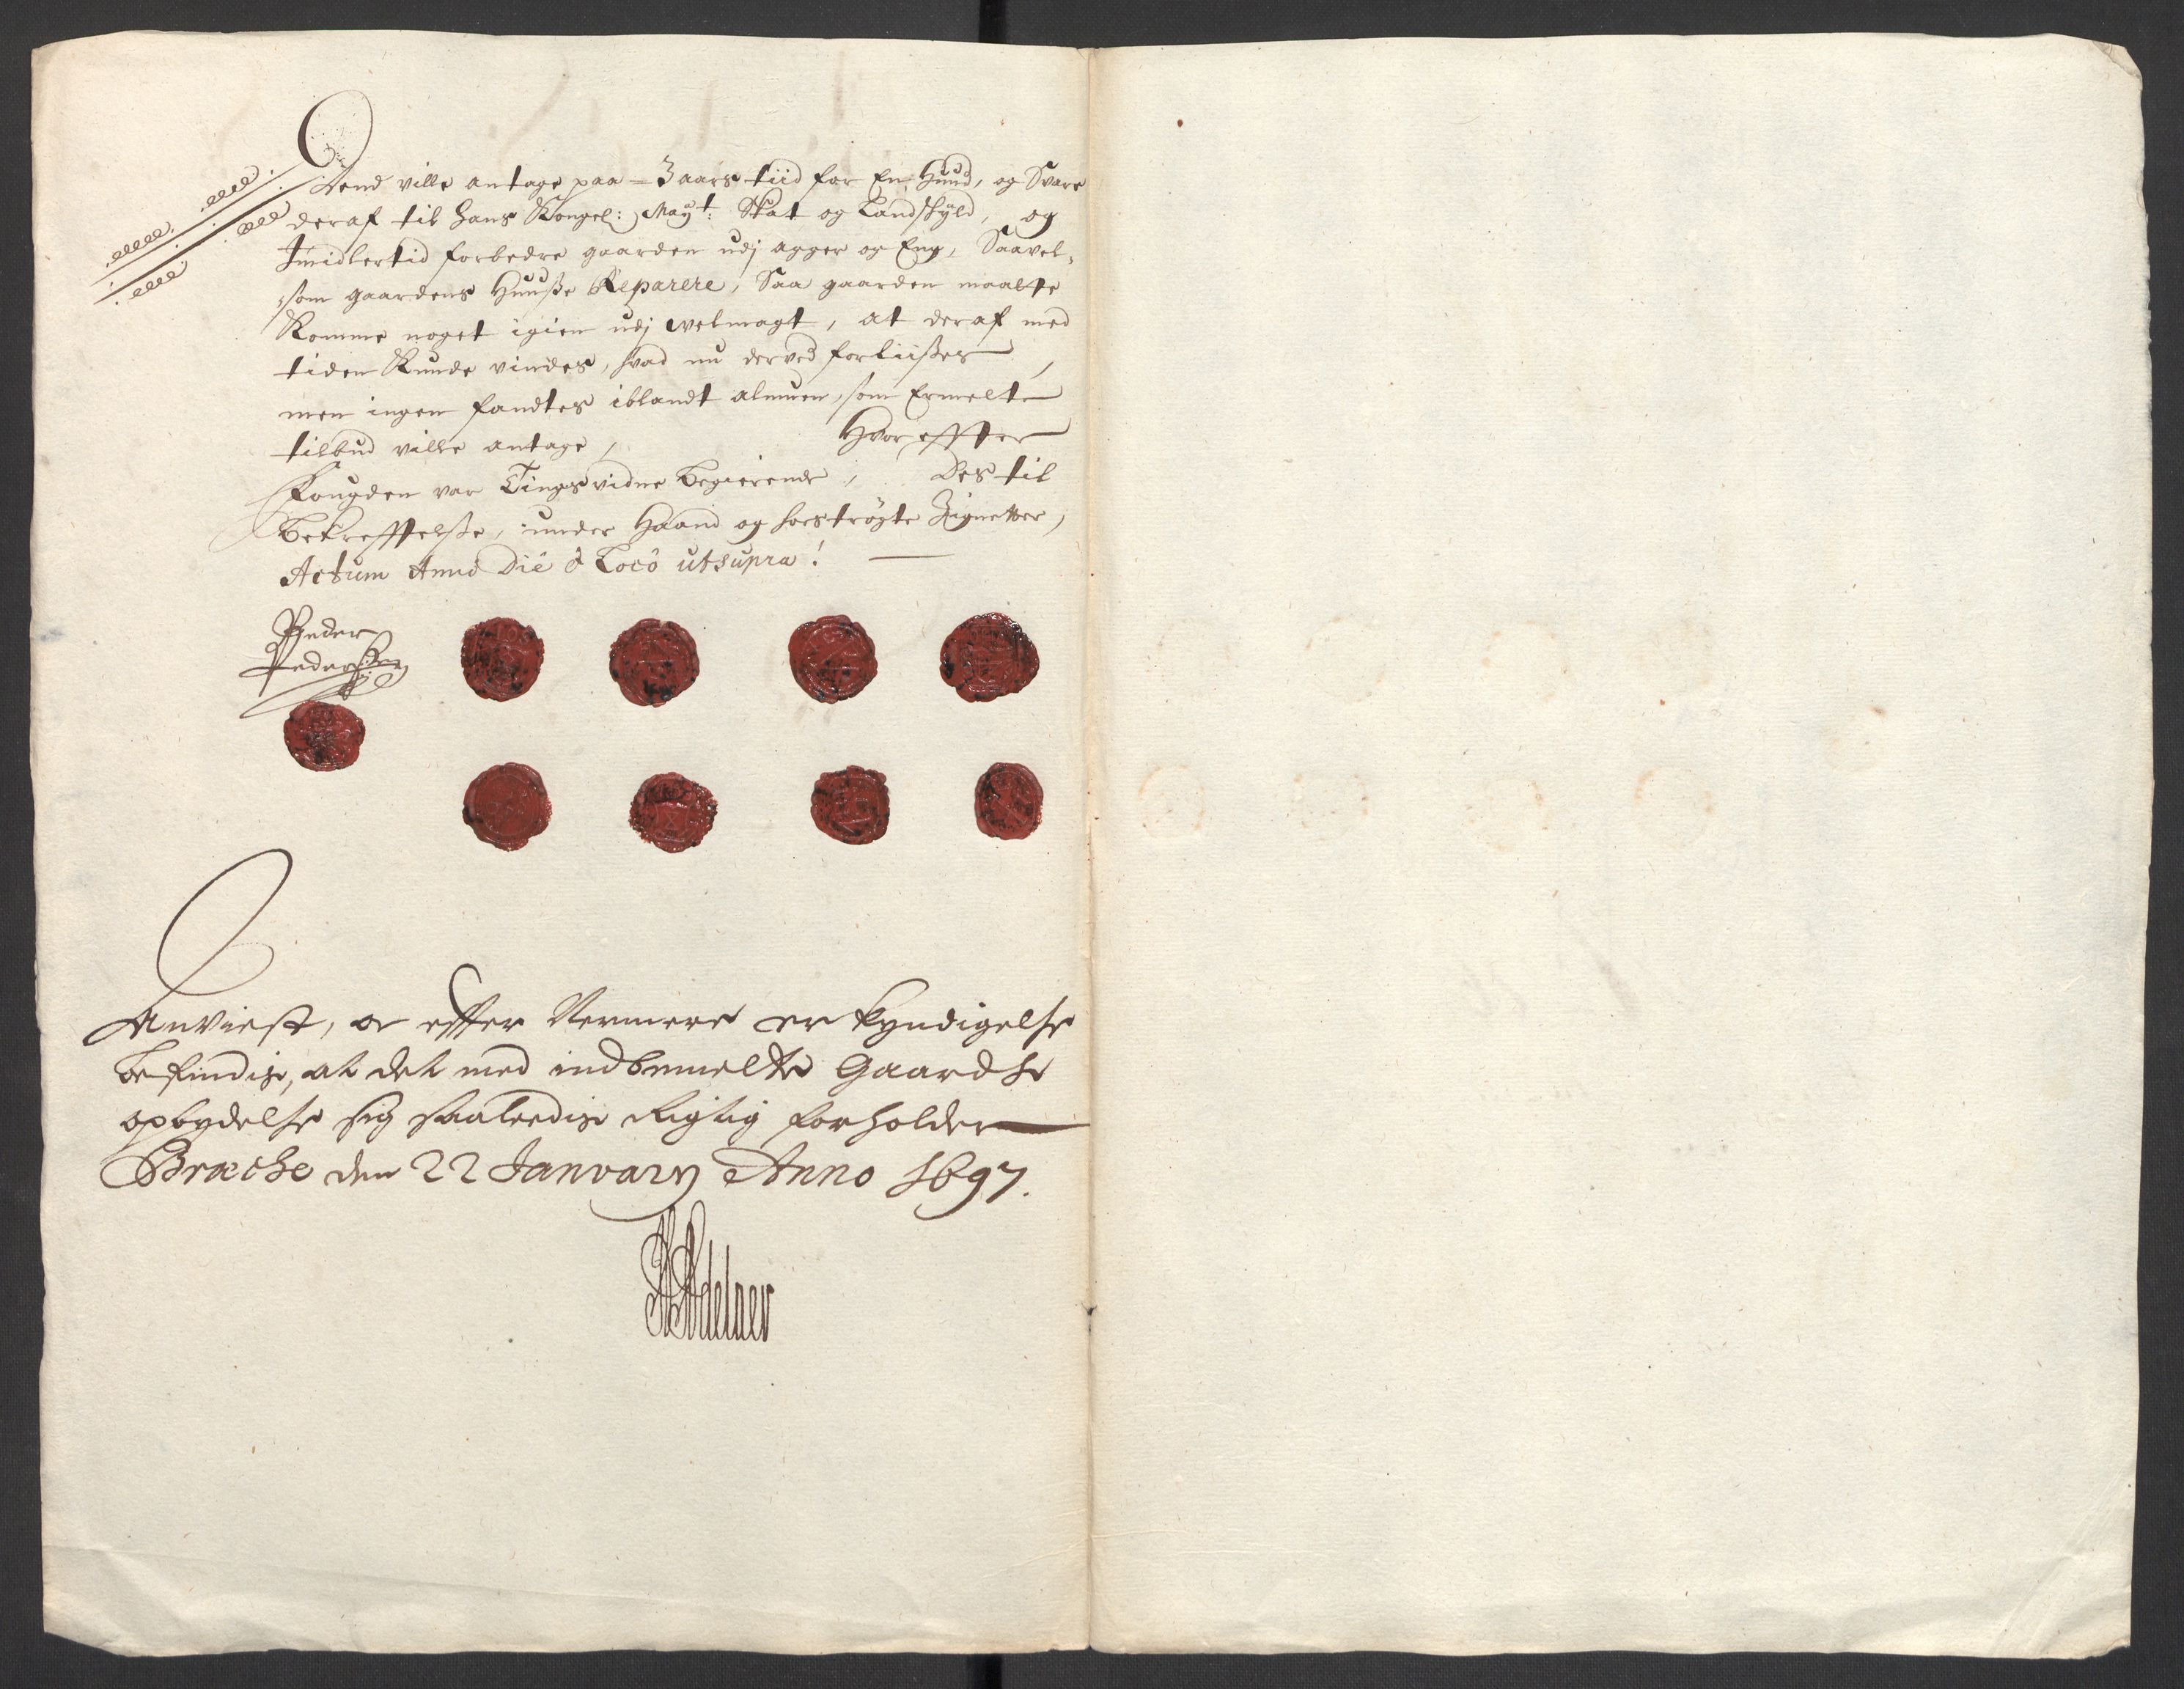 Dend ville antage paa - 3 aars tiid for En Huud, og Svare
deraf til hans Kongel: Mayt: Skat og Landskyld, og
Imidlertid forbedre gaarden udj agger og Eng, Saavel-
som gaardens Huuße Reparere, Saa gaarden maatte
Komme noget igien udj velmagt, at deraf med
tiden Kunde vindes, hvad nu derved forliißes,
men ingen fandtes iblandt almuen, som Ermelte
tilbud ville antage, Hvor effter
Fougden var Tingsvidne Begierende, Des til
Bekrefftelße, under Haand og hoströgte Zignetter,
Actum Anno Die & Loco utsupra!
Peder
Pederßen
Anviist, og effter Nermere erkyndigelse
befindis, at det med indbemelte Gaardse
opbydelse sig saaledis Rigtig forholder
Bratche den 22 January Anno 1697.
Adelaer